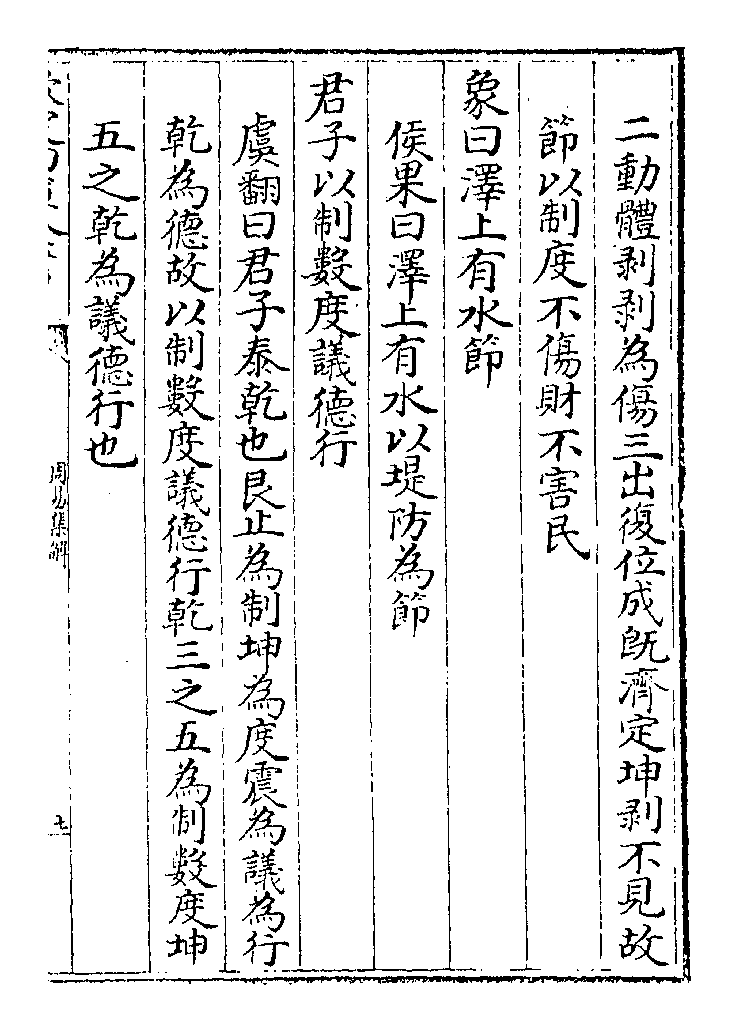 二動體剥剥為傷三出復位成旣濟定坤剥不見故
節以制度不傷財不害民
象曰澤上有水節
侯果曰澤上有水以堤防為節
君子以制數度議德行
虞翻曰君子泰乾也艮止為制坤為度震為議為行
乾為德故以制數度議德行乾三之五為制數度坤
五之乾為議德行也
周易集解
七